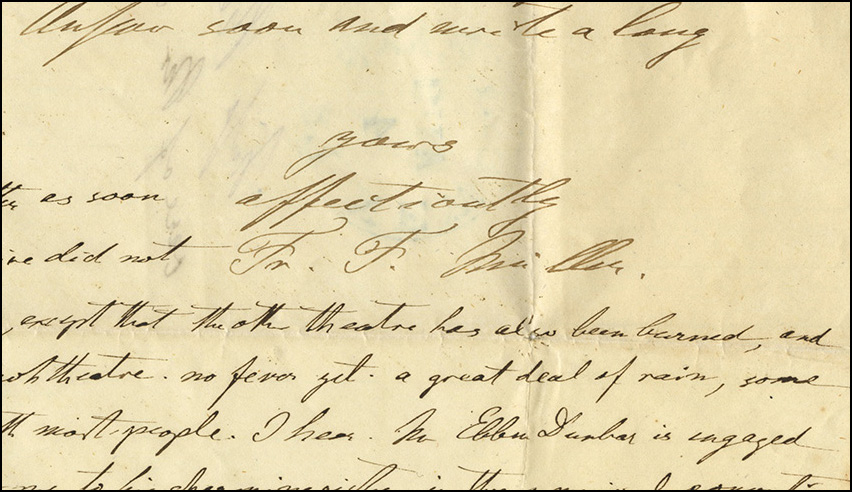 Answer soon and write a long
yours
as soon affectiontly
did not Fr. F. Miller.
, except that the other theatre has also been burned, and
theatre. no fever yet. a great deal of rain, some
most people. I hear Eben Dunbar is engaged
to be charming in the